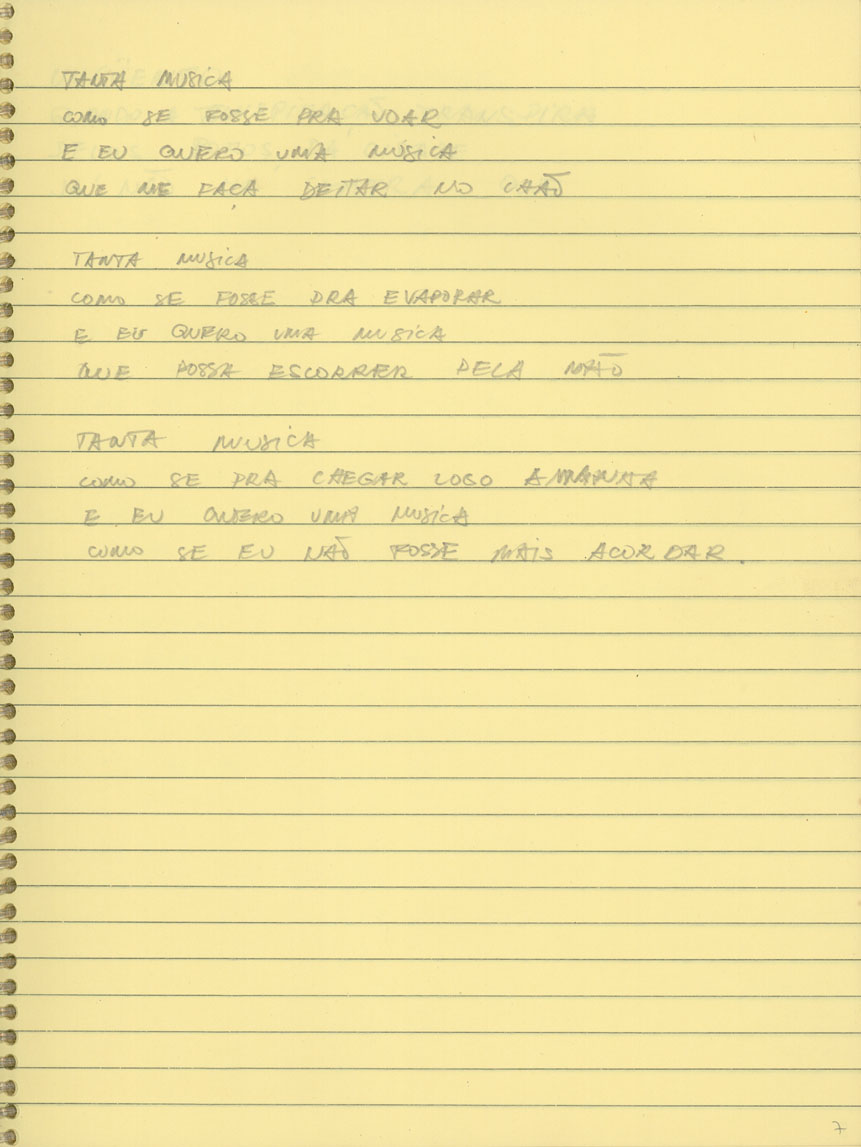 TANTA MUSICA
COMO SE FOSSE PRA VOAR
E EU QUERO UMA MÚSICA
QUE ME FAÇA DEITAR NO CHÃO
TANTA MUSICA
COMO SE FOSSE PRA EVAPORAR
E EU QUERO UMA MUSICA
QUE POSSA ESCORRER PELA MÃO
TANTA MUSICA
COMO SE PRA CHEGAR LOGO AMANHÃ
E EU QUERO UMA MUSICA
COMO SE EU NÃO FOSSE MAIS ACORDAR.
7